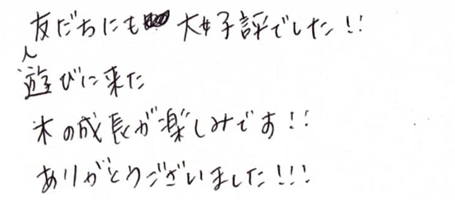 友だちにも 大好評でした!!
遊びに来た
木の成長が楽しみです!!
ありがとうございました!!!